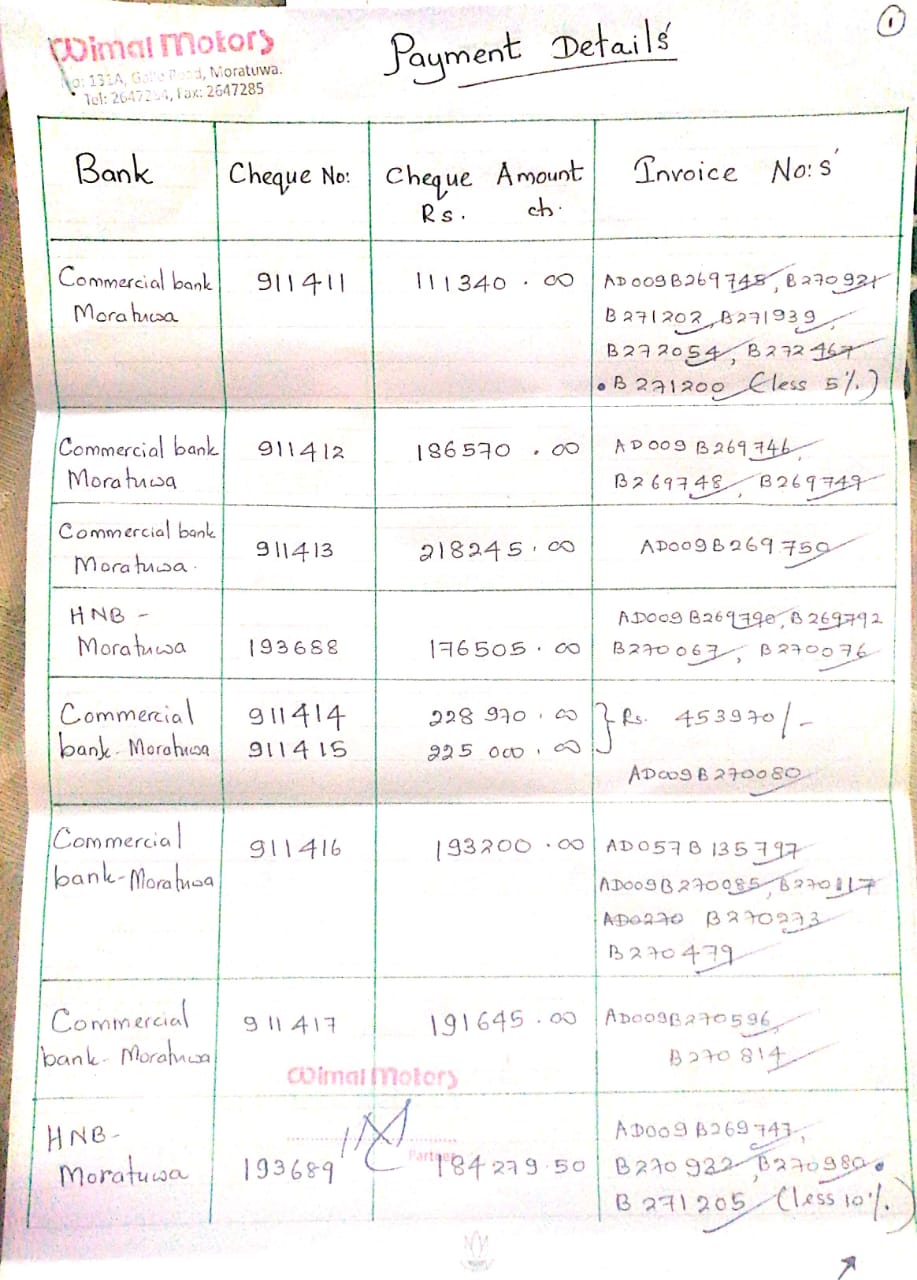 1
Wimal Motors
Payment Details
No: 131A, Galle Road, Moratuwa.
Tel: 2647284, Fax: 2647285
Bank Cheque No: Cheque Amount Invoice No:s'
Rs. ch.
Commercial bank 911411 111340.00 AD009B269745, B270921
Moratuwa B271202, B271939,
B272054, B272467
B271200 (less 5%)
Commercial bank 911412 186570.00 AD009B269746,
Moratuwa B269748, B269749
Commercial bank 911413 218245.00 AD009B269750
Moratuwa.
HNB - AD009B269790, B269792
Moratuwa 193688 176505.00 B270067, B270076
Commercial 911414 228970.00 } Rs. 453970/-
bank-Moratuwa 911415 225000.00
AD009B270080
Commercial 911416 193200.00 AD057B135797
bank-Moratuwa AD009B270085, B270117
AD0270 B270273
B270479
Commercial 911417 191645.00 AD009B270596,
bank-Moratuwa B270814
Wimal Motors
HNB- AD009B269747,
Partner
Moratuwa 193689 184279.50 B270922, B270980.
B271205 (less 10%)